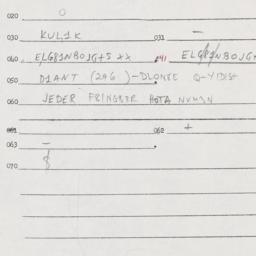 020 O
030 KUL1K 031 —
040 ELGRINBOJGTS XX 041 ELGRINBOJG
050 D1ANT (246)-DLONKE Q-YIDISH
060 JEDER FRINGBER HOTA NUMIN
061 062 +
063 —
070